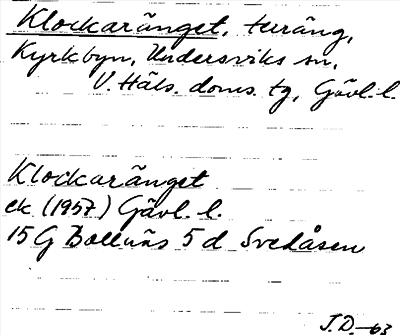 Klockaränget, teräng,
Kyrkbyn, Undersviks sn,
V. Häls. doms. tg, Gävl. l.
Klockaränget
ek (1957) Gävl. l.
15 G Bollnäs 5 d Svedåsen
J.D.-63